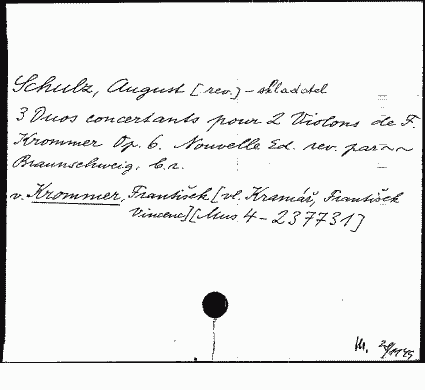 Schulz, August [rev.] - skladatel
3 Duos concertants pour 2 Violons de F.
Krommer Op. 6. Nouvelle Ed. rev. par ~~
Braunschweig, b.r.
v. Krommer, František [vl. Kramář, František
Vincenc] [Mus 4 - 237731]